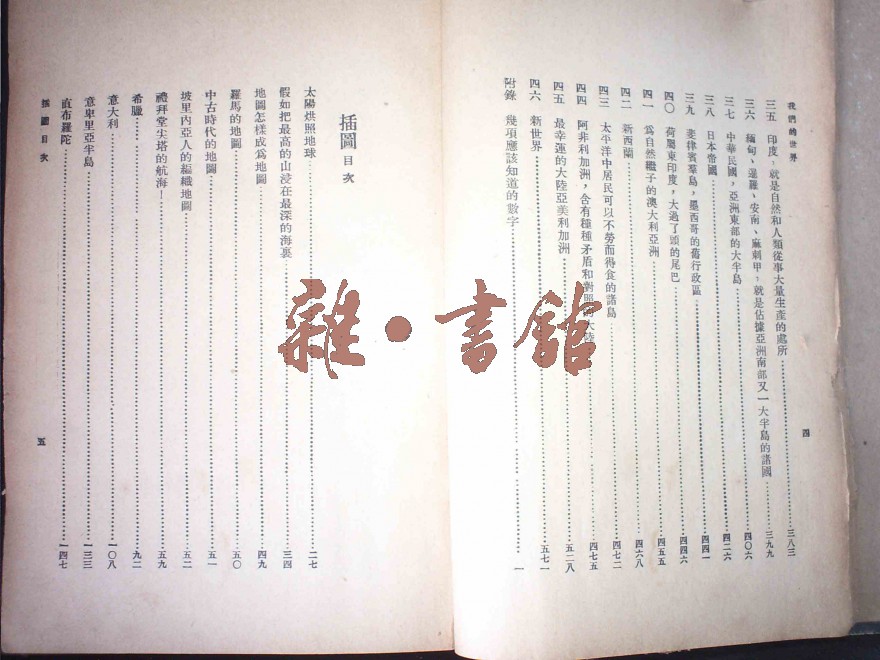 我們的世界
四
三五 印度，就是自然和人類從事大量生產的處所……三八三
三六 緬甸、暹羅、安南、麻剌甲，就是佔據亞洲南部又一大半島的諸國……三九九
三七 中華民國，亞洲東部的大半島……四〇六
三八 日本帝國……四二六
三九 菲律賓羣島，墨西哥的舊行政區……四四一
四〇 荷屬東印度，大過了頭的尾巴……四四六
四一 為自然繼子的澳大利亞洲……四五五
四二 新西蘭……四六八
四三 太平洋中居民可以不勞而得食的諸島……四七二
四四 阿非利加洲，含有種種矛盾和對照的大陸……四七五
四五 最幸運的大陸亞美利加洲……五二八
四六 新世界……五七一
附錄 幾項應該知道的數字……一
插圖目次
太陽烘照地球……二七
假如把最高的山浸在最深的海裏……三四
地圖怎樣成為地圖……四九
羅馬的地圖……五〇
中古時代的地圖……五一
坡里內亞人的編織地圖……五二
禮拜堂尖塔的航海！……五九
希臘……九二
意大利……一〇八
意卑里亞半島……一三三
直布羅陀……一四七
插圖目次
五
雜·書館